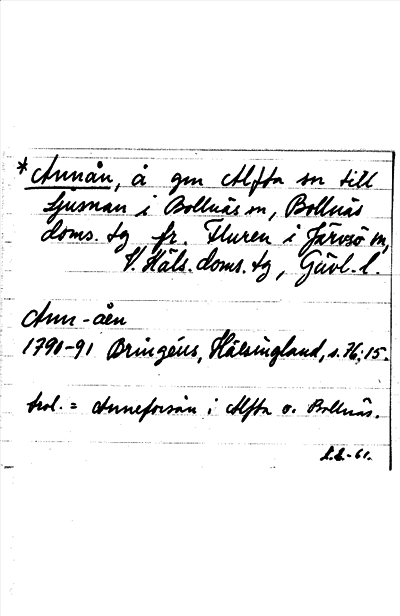 * Annån, å gm Alfta sn till
Ljusnan i Bollnäs sn, Bollnäs
doms. tg fr. Fluren i Järvsö sn,
V. Häls. doms. tg, Gävl. l.
Ann-åen
1790-91 Bringéus, Hälsingland, s. 76; 15.
trol. = Anneforsån i Alfta o. Bollnäs.
-61.